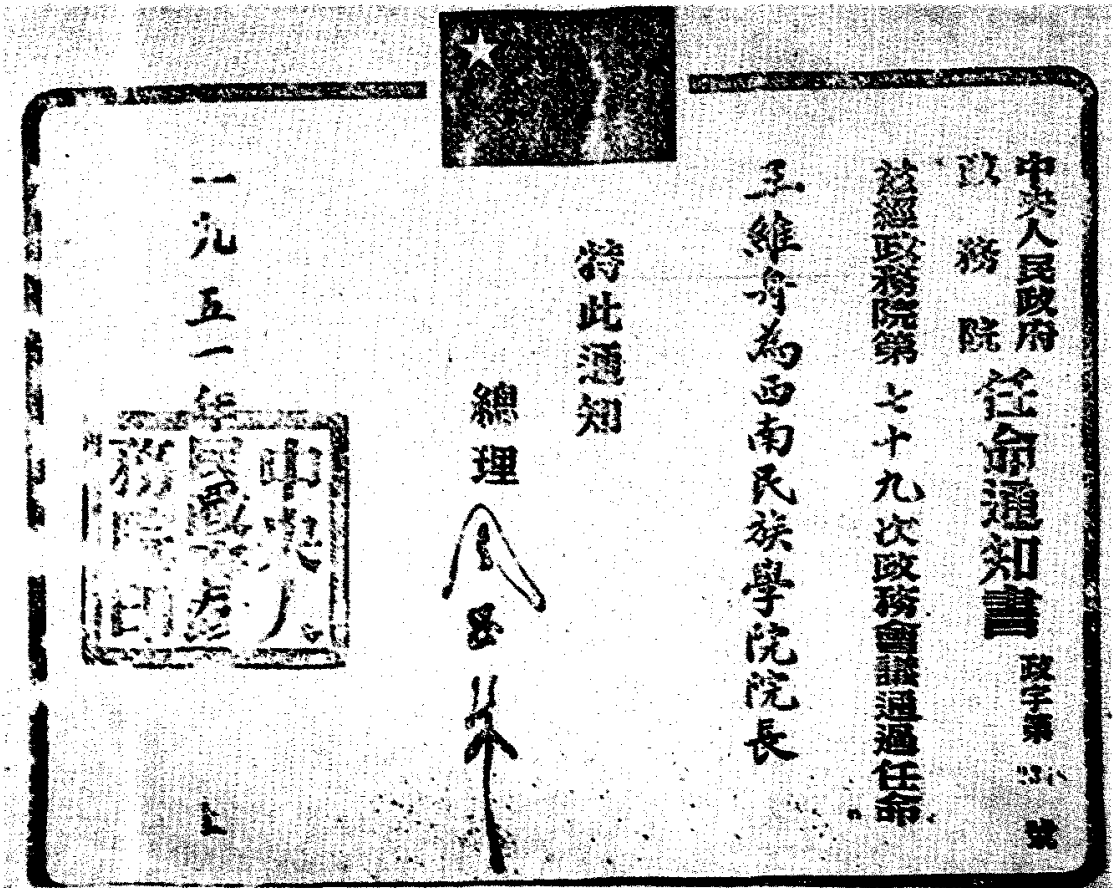 中央人民政府
政務院
任命通知書
政字第 號
茲經政務院第七十九次政務會議通過任命
王維舟為西南民族學院院長
特此通知
總理 周恩來
一九五一年
中央人
民政
務院印